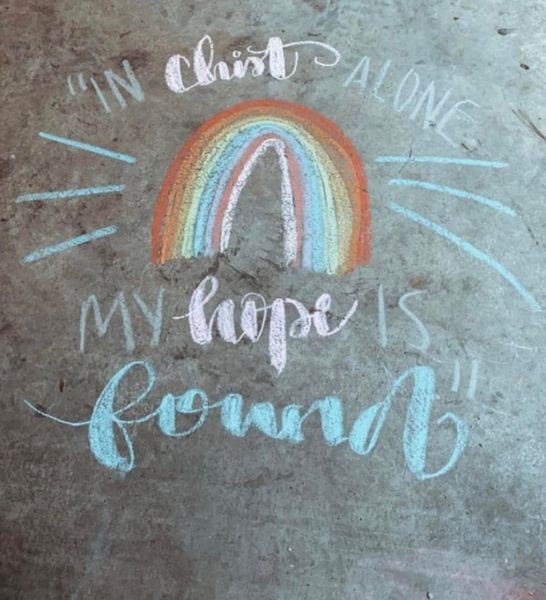 "IN Christ ALONE
MY hope IS
found"